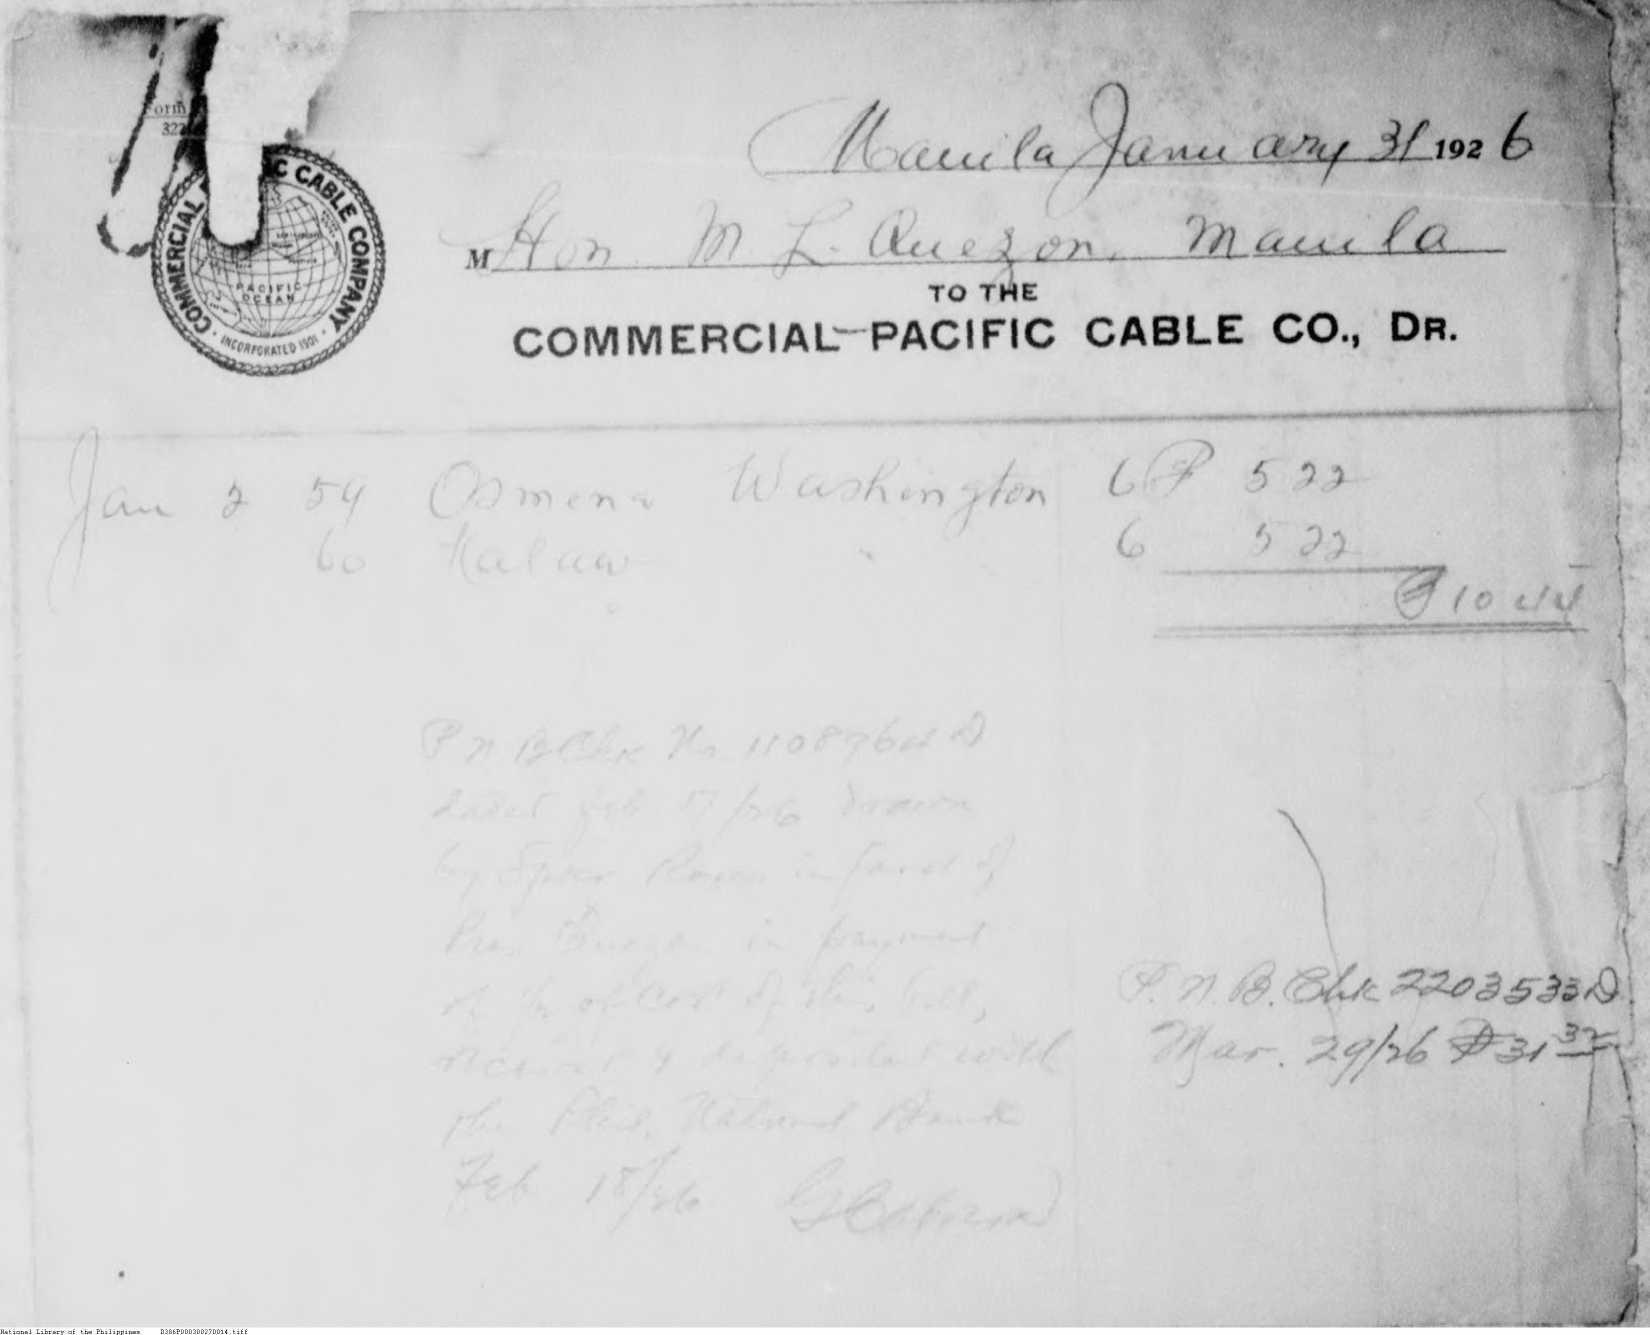 Form
322
COMMERCIAL C CABLE COMPANY
PACIFIC
OCEAN
INCORPORATED 1901
Manila January 31 1926
M Hon. M. L. Quezon, Manila
TO THE
COMMERCIAL PACIFIC CABLE CO., DR.
Jan 2 59 Osmena Washington 6 ₱ 5 22
60 Kalaw " 6 5 22
₱ 10 44
P N B Chk No. D
dated Feb 17/26 drawn
by in favor of
Pres. Quezon in payment
of of cost of this bill,
deposited with
the Phil. National Bank
Feb 18/26
P. N. B. Chk 2203533 D
Mar. 29/26 ₱ 31 32
National Library of the Philippines D386P000300270014.tiff